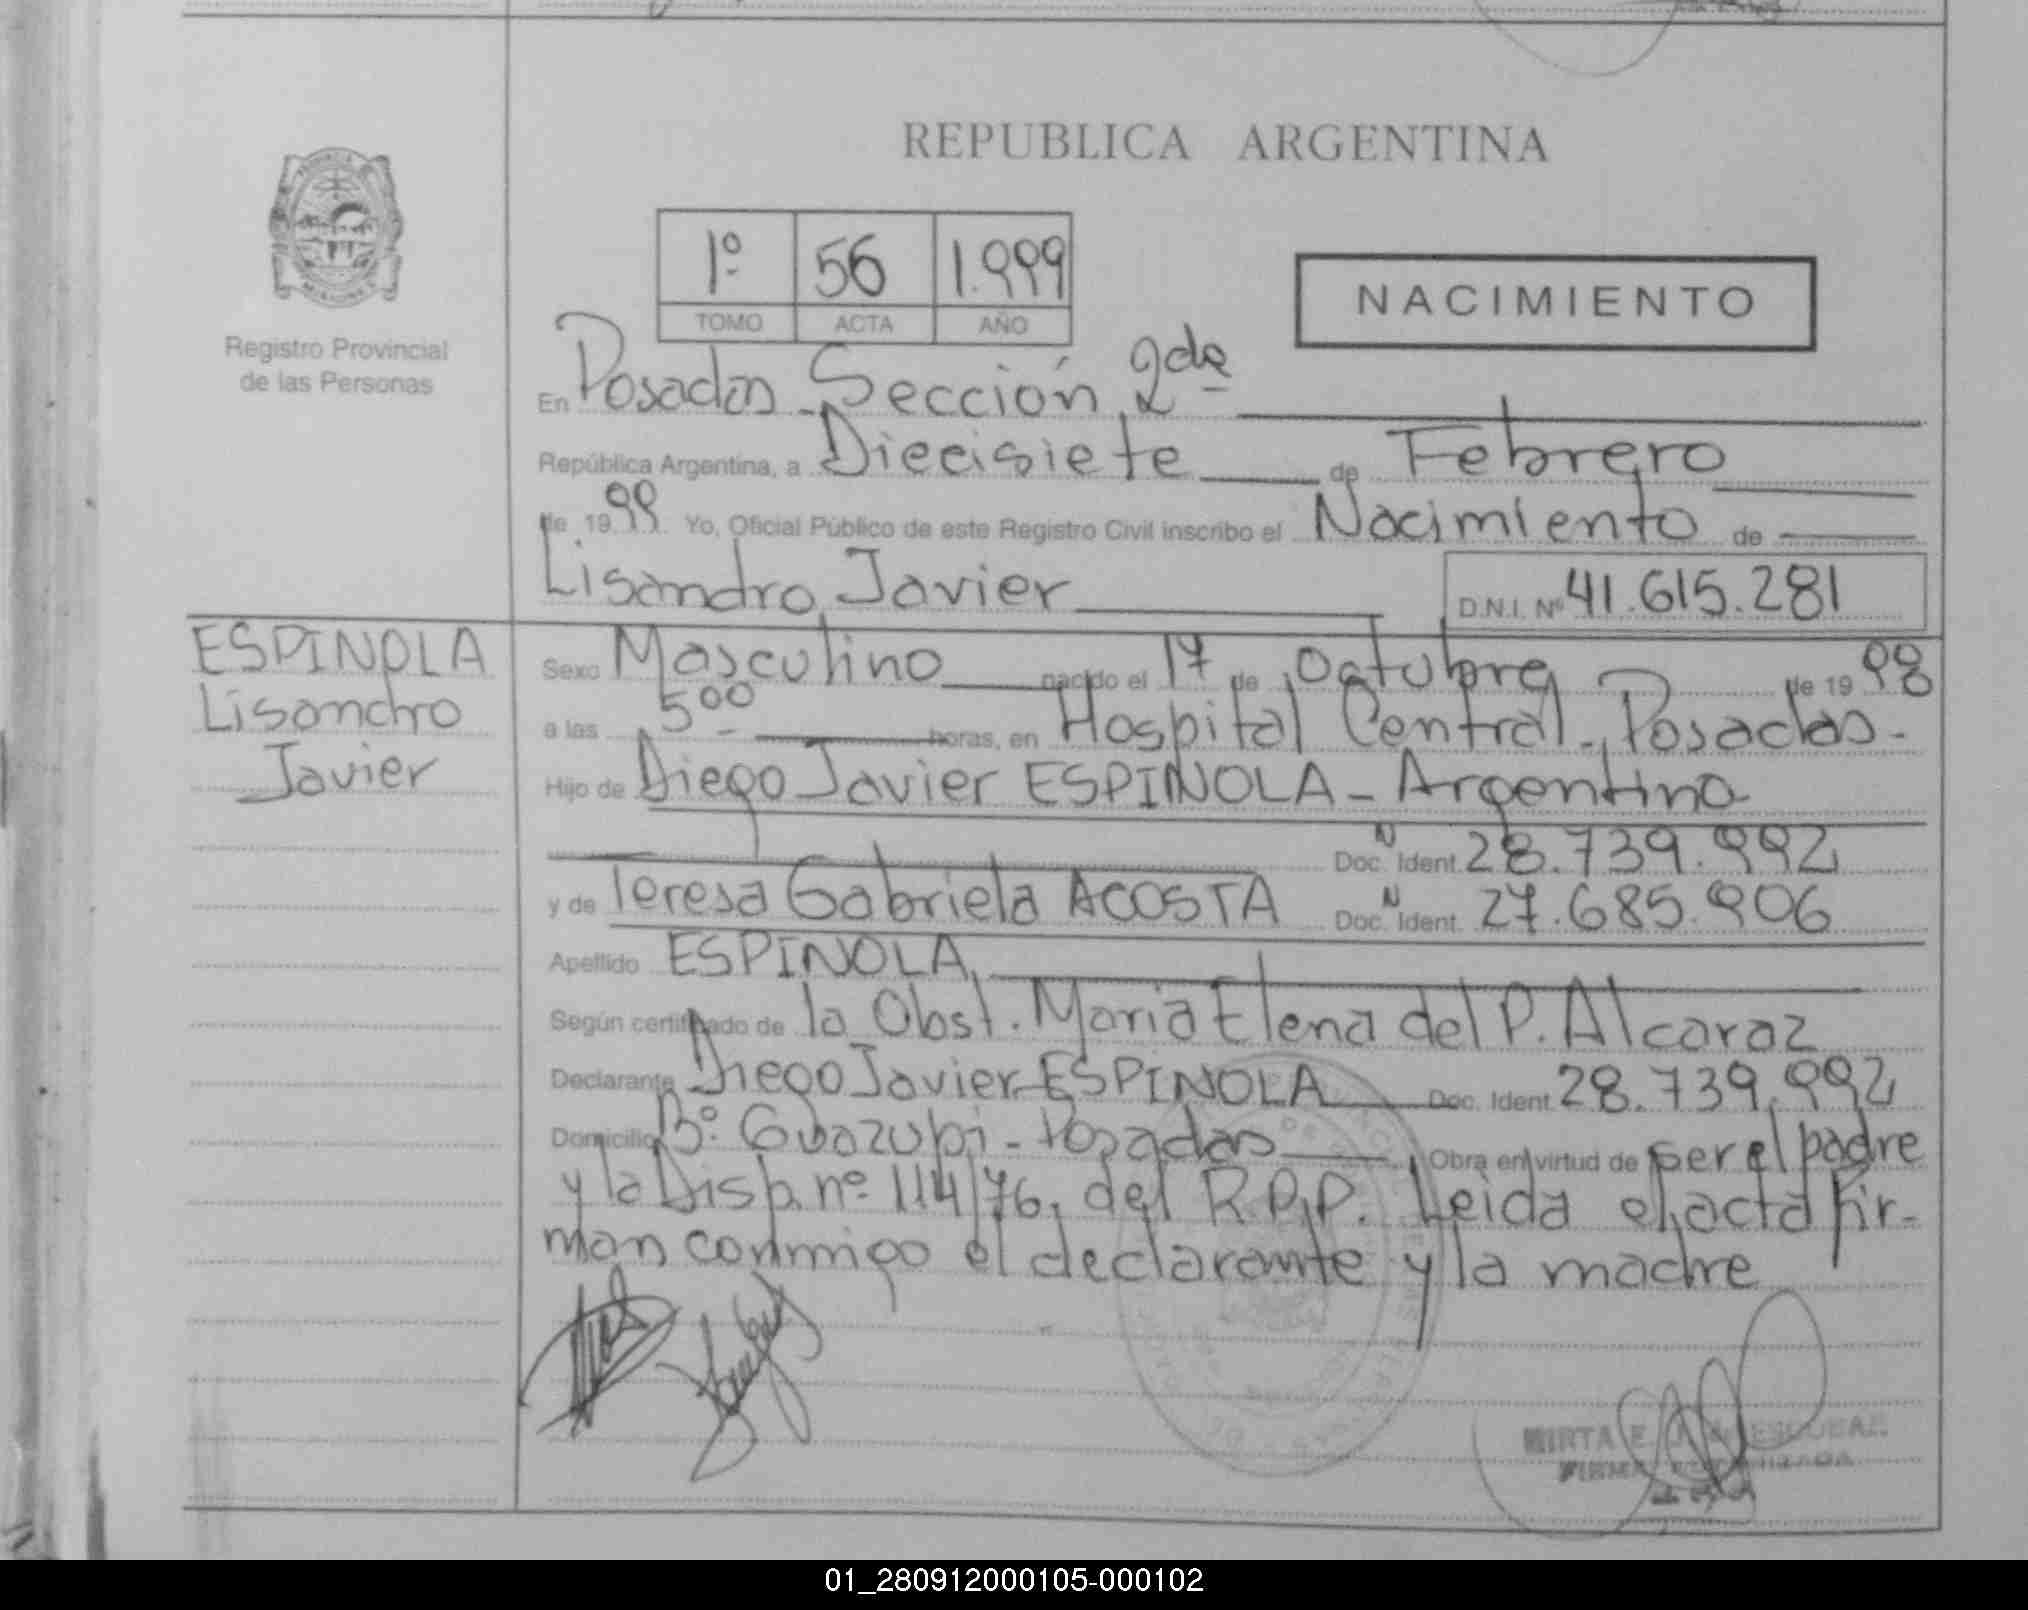 REPUBLICA ARGENTINA
Registro Provincial
de las Personas
1º 56 1.999
TOMO ACTA AÑO
NACIMIENTO
En Posadas - Sección 2da
República Argentina, a Diecisiete de Febrero
de 1999 Yo, Oficial Público de este Registro Civil inscribo el Nacimiento de
Lisandro Javier D.N.I. Nº 41.615.281
ESPINOLA
Lisandro
Javier
Sexo Masculino nacido el 17 de octubre de 1998
a las 5ºº horas, en Hospital Central - Posadas -
Hijo de Diego Javier ESPINOLA - Argentino
Doc. N Ident. 28.739.992
y de Teresa Gabriela ACOSTA Doc. N Ident. 27.685.906
Apellido ESPINOLA
Según certificado de la Obst. Maria Elena del P. Alcaraz
Declarante Diego Javier ESPINOLA Doc. Ident. 28.739.992
Domicilio Bº. Guazupi - Posadas Obra en virtud de ser el padre
y la Disp. nº 114/76, del R.P.P. Leida el acta fir-
man conmigo el declarante y la madre
MIRTA E. ESCOBAR
FIRMA
01_280912000105-000102